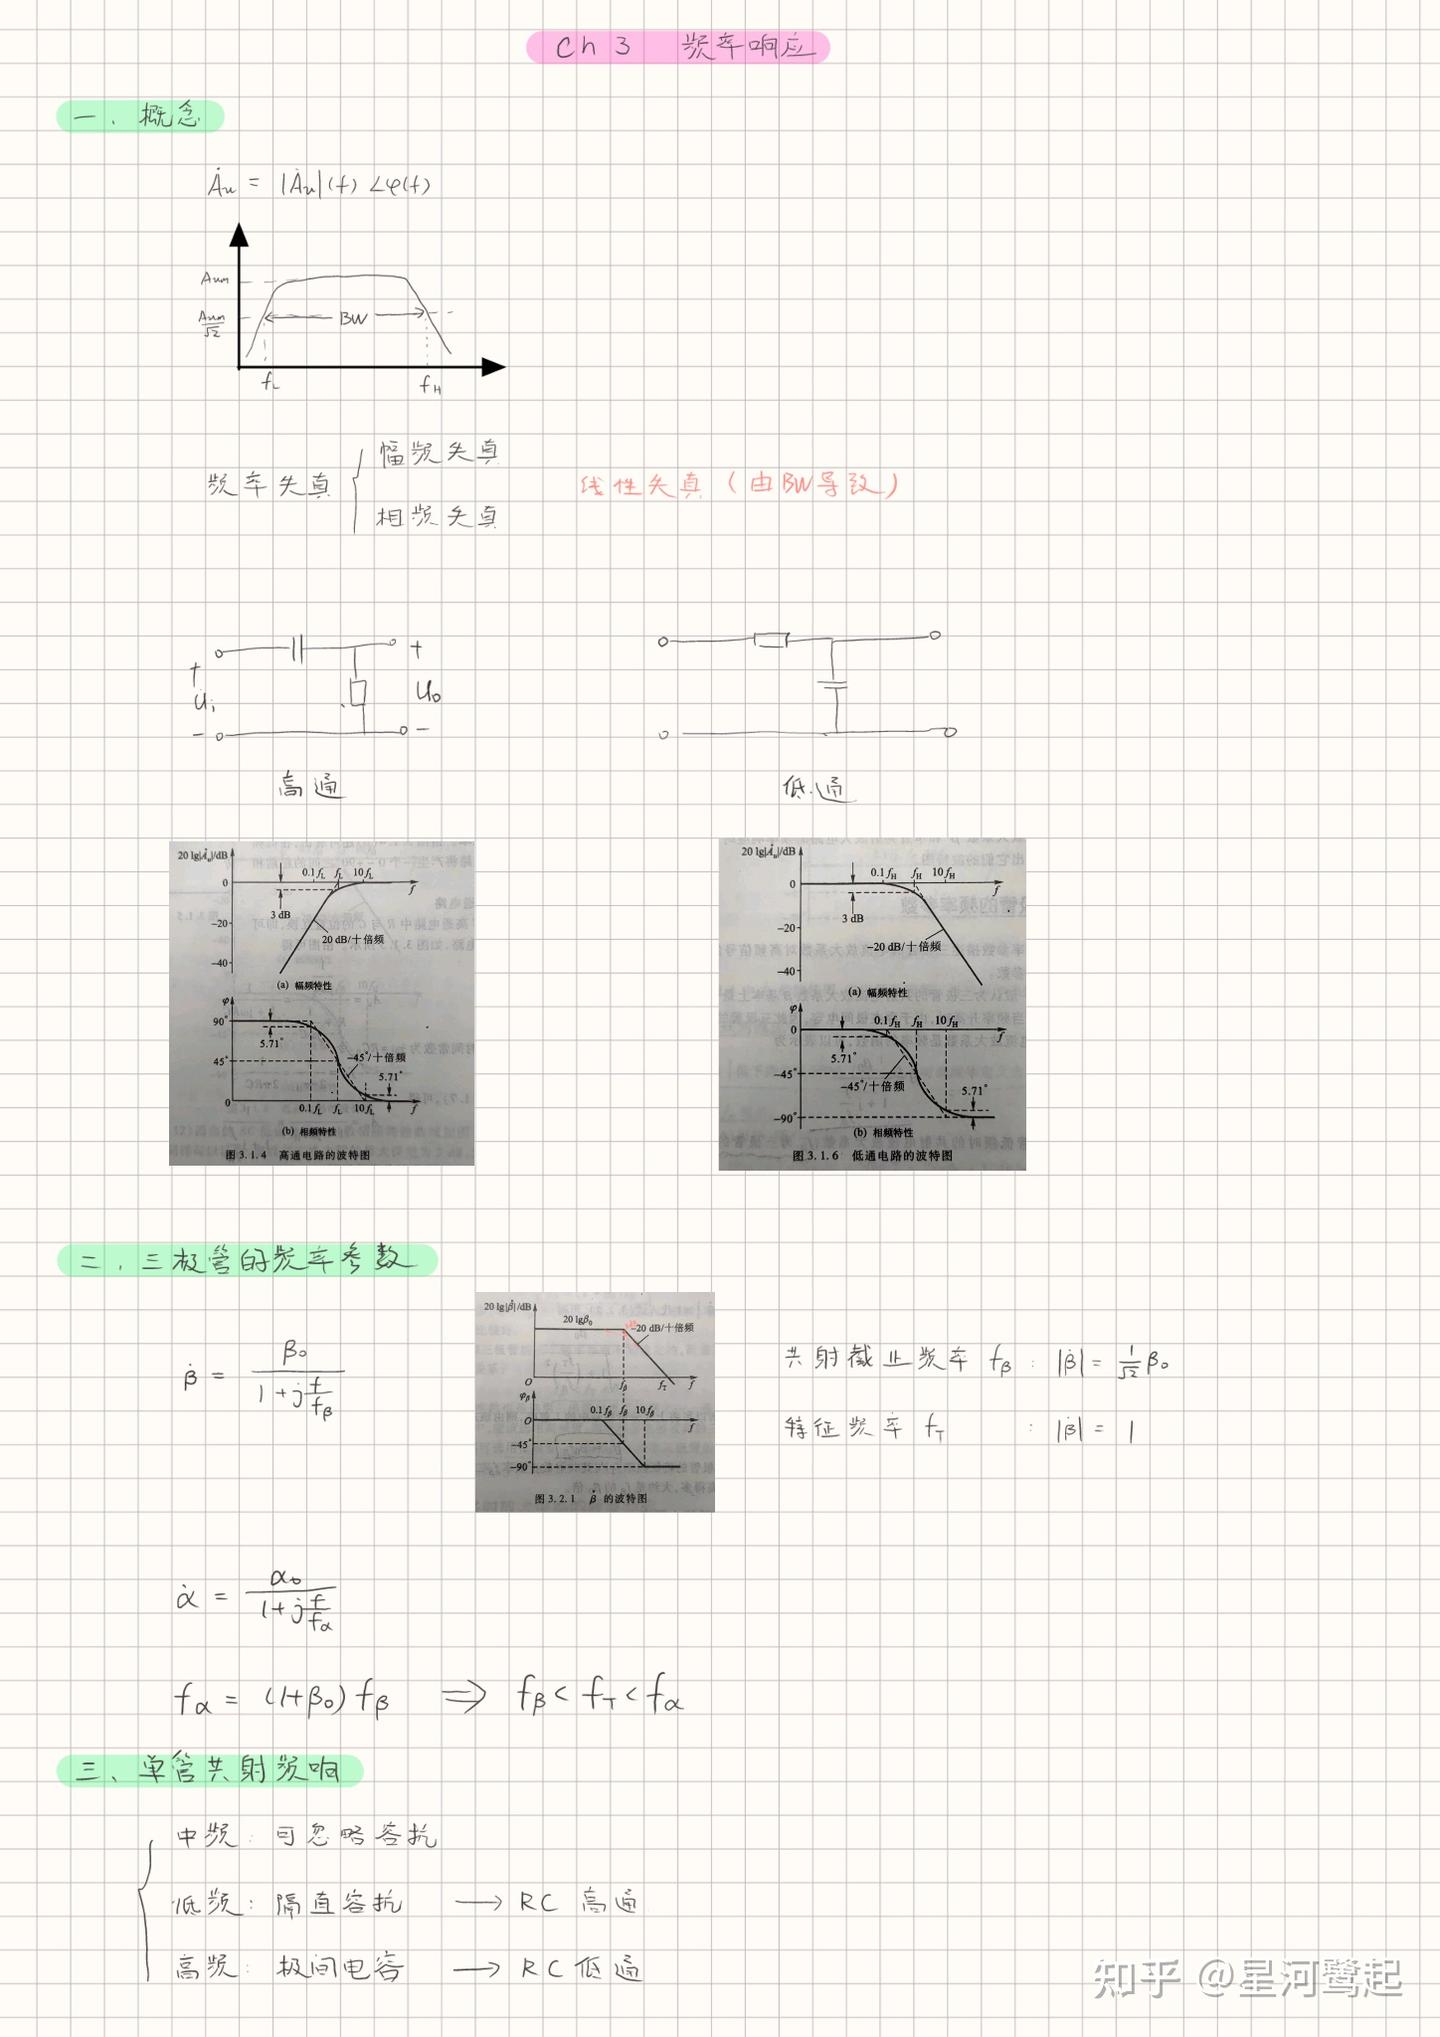 Ch 3 频率响应
一、概念
Ȧu = |Ȧu|(f) ∠φ(f)
Aum
Aum/√2
BW
fL
fH
频率失真 { 幅频失真
相频失真
线性失真（由BW导致）
+
U̇i
−
+
U̇o
−
高通
低通
20 lg|Ȧu|/dB
0.1fL fL 10fL
0
f
3 dB
-20
20 dB/十倍频
-40
(a) 幅频特性
φ
90°
5.71°
-45°/十倍频
45°
5.71°
0
0.1fL fL 10fL f
(b) 相频特性
图 3.1.4 高通电路的波特图
20 lg|Ȧu|/dB
0.1fH fH 10fH
0
f
3 dB
-20
-20 dB/十倍频
-40
(a) 幅频特性
φ
0.1fH fH 10fH
0
f
5.71°
-45°
-45°/十倍频
5.71°
-90°
(b) 相频特性
图 3.1.6 低通电路的波特图
二、三极管的频率参数
β̇ = β0/(1+j f/fβ)
20 lg|β̇|/dB
20 lgβ0
-20 dB/十倍频
O
fβ fT f
φβ
0.1fβ fβ 10fβ
O
f
-45°
-90°
图 3.2.1 β̇ 的波特图
共射截止频率 fβ : |β̇| = 1/√2 β0
特征频率 fT : |β̇| = 1
α̇ = α0/(1+j f/fα)
fα = (1+β0) fβ ⟹ fβ < fT < fα
三、单管共射频响
中频: 可忽略容抗
低频: 隔直容抗 → RC 高通
高频: 极间电容 → RC 低通
知乎 @星河鹭起